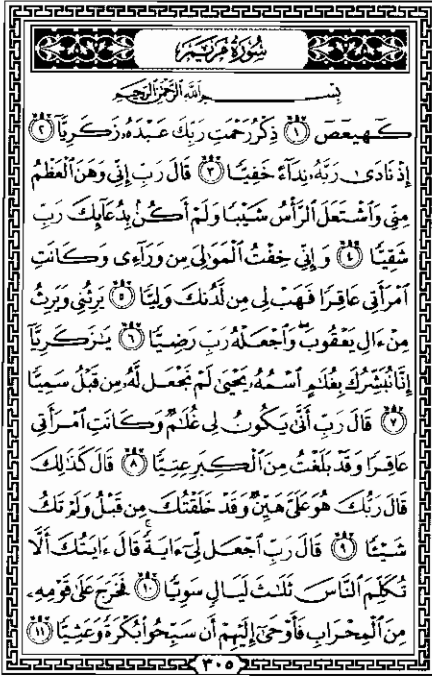 سُورَةُ مَرْيَمَ
بِسْمِ ٱللَّهِ ٱلرَّحْمَٰنِ ٱلرَّحِيمِ
كٓهيعٓصٓ ١ ذِكْرُ رَحْمَتِ رَبِّكَ عَبْدَهُۥ زَكَرِيَّآ ٢
إِذْ نَادَىٰ رَبَّهُۥ نِدَآءً خَفِيًّا ٣ قَالَ رَبِّ إِنِّى وَهَنَ ٱلْعَظْمُ
مِنِّى وَٱشْتَعَلَ ٱلرَّأْسُ شَيْبًا وَلَمْ أَكُنۢ بِدُعَآئِكَ رَبِّ
شَقِيًّا ٤ وَإِنِّى خِفْتُ ٱلْمَوَٰلِىَ مِن وَرَآءِى وَكَانَتِ
ٱمْرَأَتِى عَاقِرًا فَهَبْ لِى مِن لَّدُنكَ وَلِيًّا ٥ يَرِثُنِى وَيَرِثُ
مِنْ ءَالِ يَعْقُوبَ ۖ وَٱجْعَلْهُ رَبِّ رَضِيًّا ٦ يَٰزَكَرِيَّآ
إِنَّا نُبَشِّرُكَ بِغُلَٰمٍ ٱسْمُهُۥ يَحْيَىٰ لَمْ نَجْعَل لَّهُۥ مِن قَبْلُ سَمِيًّا
٧ قَالَ رَبِّ أَنَّىٰ يَكُونُ لِى غُلَٰمٌ وَكَانَتِ ٱمْرَأَتِى
عَاقِرًا وَقَدْ بَلَغْتُ مِنَ ٱلْكِبَرِ عِتِيًّا ٨ قَالَ كَذَٰلِكَ
قَالَ رَبُّكَ هُوَ عَلَىَّ هَيِّنٌ وَقَدْ خَلَقْتُكَ مِن قَبْلُ وَلَمْ تَكُ
شَيْـًٔا ٩ قَالَ رَبِّ ٱجْعَل لِّىٓ ءَايَةً ۚ قَالَ ءَايَتُكَ أَلَّا
تُكَلِّمَ ٱلنَّاسَ ثَلَٰثَ لَيَالٍ سَوِيًّا ١٠ فَخَرَجَ عَلَىٰ قَوْمِهِۦ
مِنَ ٱلْمِحْرَابِ فَأَوْحَىٰٓ إِلَيْهِمْ أَن سَبِّحُوا۟ بُكْرَةً وَعَشِيًّا ١١
٣٠٥